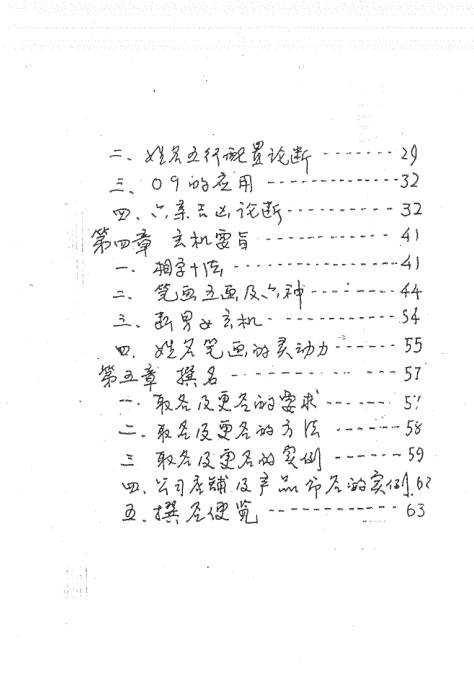 二、姓名五行配置论断-------29
三、09的应用------------32
四、六亲吉凶论断----------32
第四章 玄机要旨----------41
一、相字十法------------41
二、笔画五画及六神--------44
三、断男女玄机-----------54
四、姓名笔画的灵动力------55
第五章 撰名-------------57
一、取名及更名的要求------57
二、取名及更名的方法------58
三 取名及更名的实例------59
四、公司店铺及产品命名的实例.62
五、撰名便览------------63